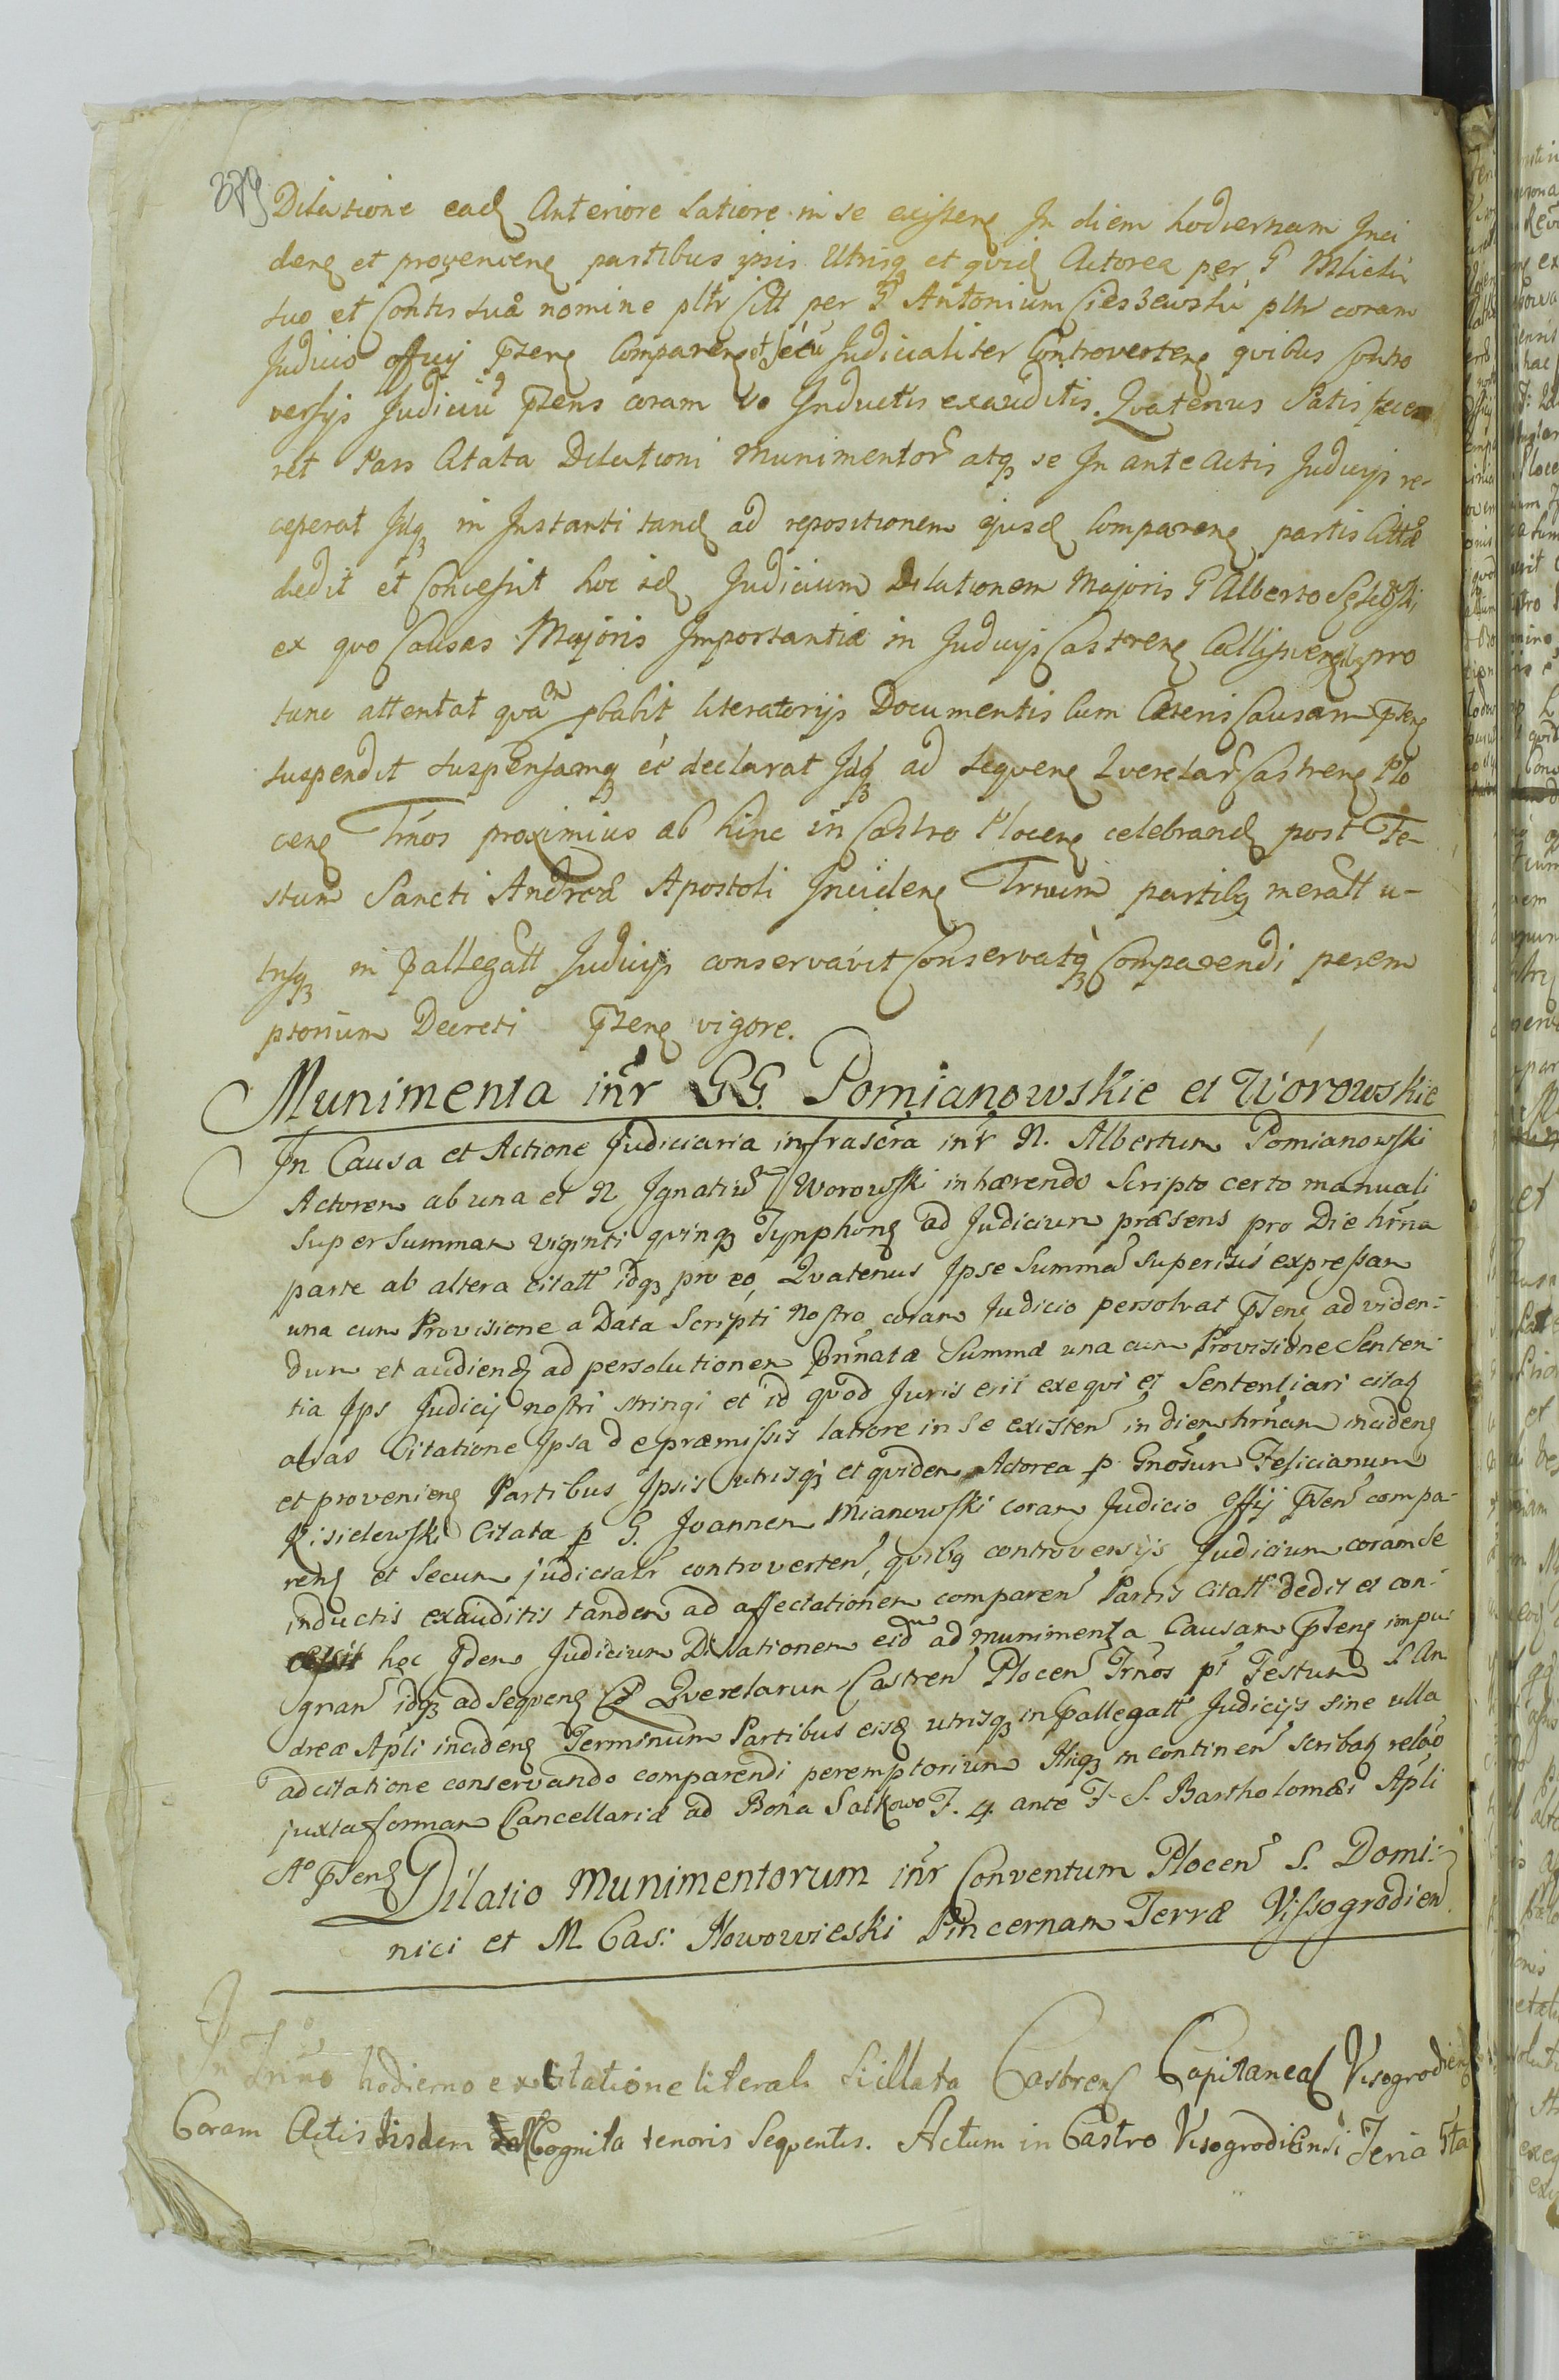 379
Dilatione ead Anteriore Latiore in se existen In diem hodiernam Inci
den et provenien partibus ipsis Utrisq et quid Actorea per G Mlicki
suo et Contis suæ nomine pltr Citt per G Antonium Cieszewski pltr coram
Judicio Offij Psen Comparen et secu Judicialiter Controverten quibus Contro
versijs Judiciu Psens coram se Inductis exauditis. Qvatenus Satis fece
ret Pars Citata Dilationi Munimentor atq se In ante Actis Judicijs re-
ceperat Idq in Instanti tand ad repositionem ejusd Comparen partis Cittæ
dedit et Concessit hoc id Judicium Dilationem Majoris G Alberto
ex quo Causas Majoris Importantiæ in Judicijs Castren pro
tunc attentat qvam pbabit literatorijs Documentis Cum Cæteris Causam Psen
suspendit suspensamq eē declarat Idq ad sequen Qverelar Castren Plo
cen Trnos proximius ab hinc in Castro Plocen celebrand post Fe-
stum Sancti Andreæ Apostoli Inciden Trnum partibq meratt u-
trisq in pallegatt Judicijs conservavit Conservatq Comparendi perem
ptorium Decreti Psen vigore.
Munimenta intr GG. Pomianowskie et Worowskie
In Causa et Actione Judiciaria infrascra intr N. Albertum Pomianowski
Actorem ab una et N Ignatium Worowski inhærendo Scripto certo manuali
Super Summam viginti quinq Tynphon ad Judicium præsens pro Die hrna
parte ab altera citatt idq pro eo, Qvatenus Ipse Summam Superius expressam
una cum Provisione a Data Scripti Nostro coram Judicio persolvat Psen ad viden-
dum et audien ad persolutionem Pnnatæ Summæ una cum Provisione Senten-
tia Ips Judicij nostri stringi et id quod Juris erit exequi et Sententiari citat
alias Citatione Ipsa de præmissis latiore in se existen in diem hrnam inciden
et provenien Partibus Ipsis utrisq et quidem Actorea p Gnosum Felicianum
Kisielewski Citata p G. Joannem Mianowski coram Judicio Offij Psen compa-
ren et Secum judicialr controverten, quibq controversijs Judicium coram se
inductis exauditis tandem ad affectationem comparen Partis Citatt dedit et con-
cessit hoc Idem Judicium Dilationem eidm ad munimenta Causam Psen impu-
gnan idq ad Sequen Qverelarum Castren Plocen Trnos pt Festum S An
dreæ Apli inciden Terminum Partibus eisd utrisq in pallegatt Judicijs sine ulla
adcitatione conservando comparendi peremptorium Iliq in continen scribat relao
juxta formam Cancellariæ ad Bona Satkowo F. 4 ante F S. Bartholomæi Apli
Ao Psen
Dilatio Munimentorum intr Conventum Plocen S. Domi-
nici et M Cas: Nowowieski Pincernam Terræ Vissogrodien
In Trno hodierno ex Citatione literali Sicillata Castren Capitaneal Visogrodien
Coram Actis Iisdem Cognita tenoris Sequentis. Actum in Castro Visogrodiensi Feria 5ta